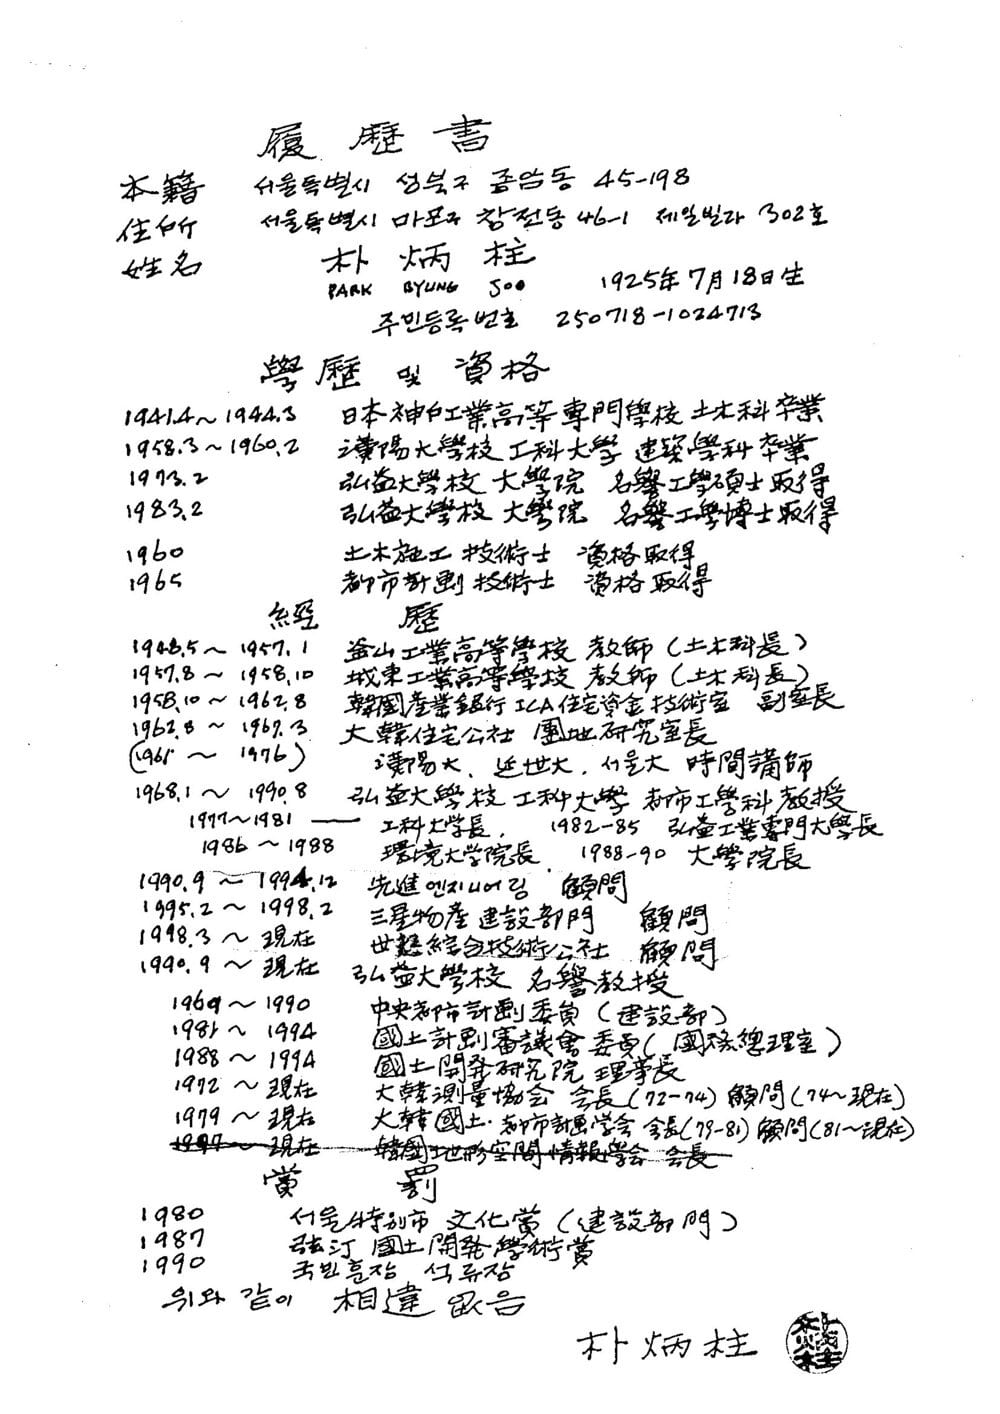 履歷書
本籍 서울특별시 성북구 종암동 45-198
住所 서울특별시 마포구 창전동 46-1 제일빌라 302호
姓名 朴炳柱
PARK BYUNG JOO 1925年7月18日生
주민등록번호 250718-1024713
學歷 및 資格
1941.4~1944.3 日本神戶工業高等專門學校 土木科卒業
1958.3~1960.2 漢陽大學校 工科大學 建築學科 卒業
1973.2 弘益大學校 大學院 名譽工學碩士取得
1983.2 弘益大學校 大學院 名譽工學博士取得
1960 土木施工 技術士 資格取得
1965 都市計劃 技術士 資格取得
經歷
1948.5~1957.1 釜山工業高等學校 敎師(土木科長)
1957.8~1958.10 城東工業高等學校 敎師(土木科長)
1958.10~1962.8 韓國産業銀行 ICA住宅資金技術室 副室長
1962.8~1967.3 大韓住宅公社 團地硏究室長
(1965~1976) 漢陽大, 近世大, 서울大 時間講師
1968.1~1990.8 弘益大學校 工科大學 都市工學科敎授
1977~1981 — 工科大学長, 1982-85 弘益工業專門大學長
1986~1988 環境大学院長, 1988-90 大學院長
1990.9~1994.12 先進엔지니어링 顧問
1995.2~1998.2 三星物産 建設部門 顧問
1998.3~現在 綜合技術公社 顧問
1990.9~現在 弘益大學校 名譽敎授
1969~1990 中央都市計劃委員(建設部)
1981~1994 國土計劃審議會委員(國務總理室)
1988~1994 國土開発硏究院 理事長
1972~現在 大韓測量協会 会長(72-74) 顧問(74~現在)
1979~現在 大韓國土·都市計画学会 会長(79-81) 顧問(81~現在)
1997~現在 韓國地形空間情報學会 会長
賞罰
1980 서울特別市 文化賞(建設部門)
1987 汀 國土開発學術賞
1990 국민훈장 석류장
위와 같이 相違 없음
朴炳柱
朴炳柱